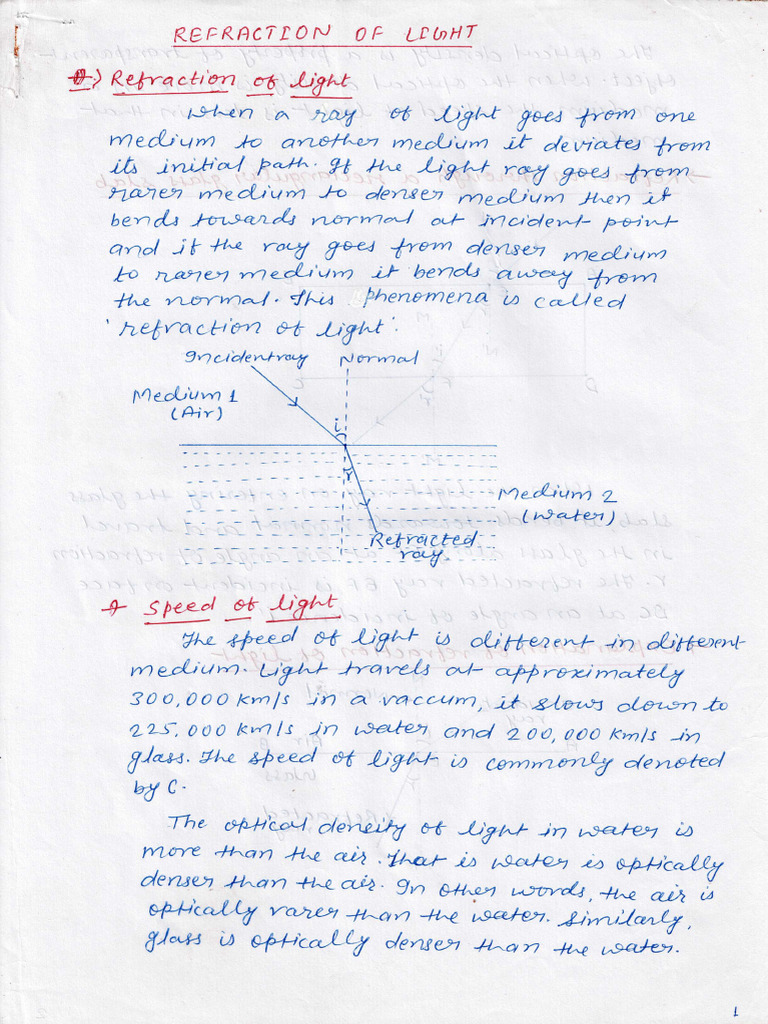 REFRACTION OF LIGHT
Refraction of light
When a ray of light goes from one
medium to another medium it deviates from
its initial path. If the light ray goes from
rarer medium to denser medium then it
bends towards normal at incident point
and if the ray goes from denser medium
to rarer medium it bends away from
the normal. This phenomena is called
'refraction of light'.
Incident ray Normal
Medium 1
(Air)
i
r
Medium 2
(Water)
Refracted
ray
→ Speed of light
The speed of light is different in different
medium. Light travels at approximately
300,000 km/s in a vaccum, it slows down to
225,000 km/s in water and 200,000 km/s in
glass. The speed of light is commonly denoted
by C.
The optical density of light in water is
more than the air. That is water is optically
denser than the air. In other words, the air is
optically rarer than the water. Similarly,
glass is optically denser than the water.
1